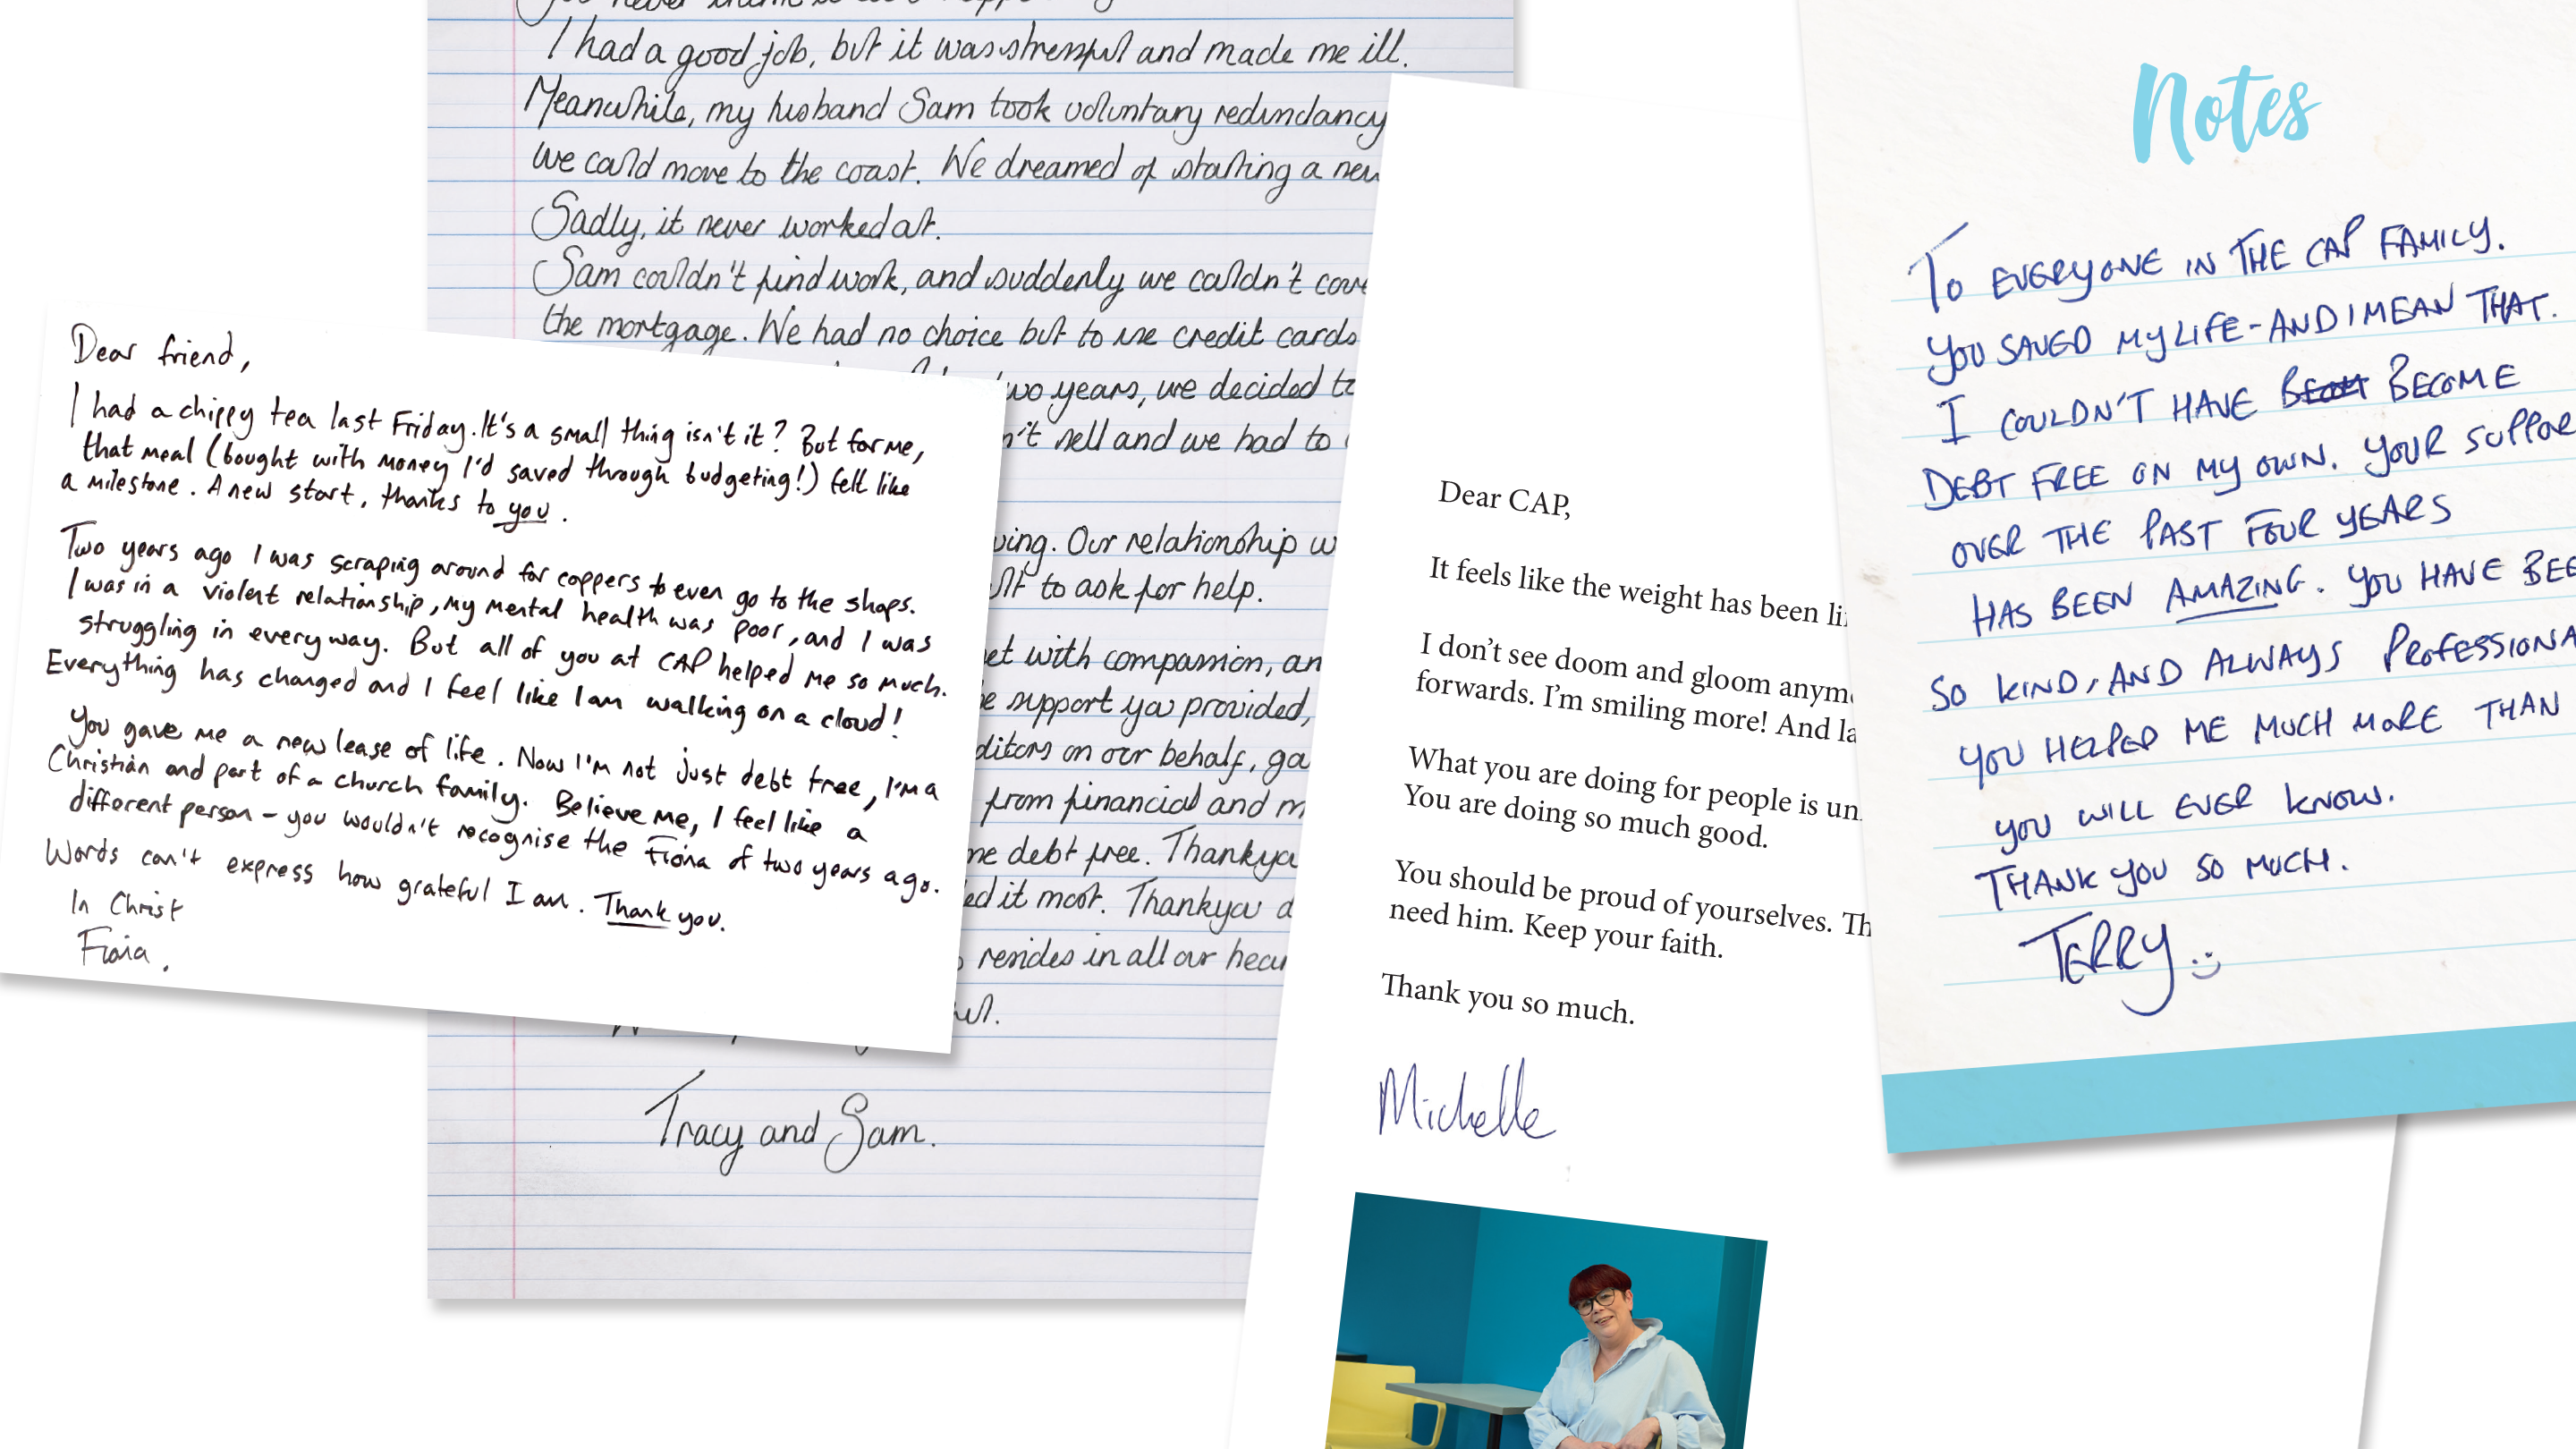 Dear friend,
I had a chippy tea last Friday. It's a small thing isn't it? But for me,
that meal (bought with money I'd saved through budgeting!) felt like
a milestone. A new start, thanks to you.
Two years ago I was scraping around for coppers to even go to the shops.
I was in a violent relationship, my mental health was poor, and I was
struggling in every way. But all of you at CAP helped me so much.
Everything has changed and I feel like I am walking on a cloud!
You gave me a new lease of life. Now I'm not just debt free, I'm a
Christian and part of a church family. Believe me, I feel like a
different person - you wouldn't recognise the Fiona of two years ago.
Words can't express how grateful I am. Thank you.
In Christ
Fiona.
I had a good job, but it was stressful and made me ill.
Meanwhile, my husband Sam took voluntary redundancy
we could move to the coast. We dreamed of starting a new
Sadly, it never worked out.
Sam couldn't find work, and suddenly we couldn't cove
the mortgage. We had no choice but to use credit cards
two years, we decided to
n't sell and we had to
ving. Our relationship w
to ask for help.
et with compassion, an
support you provided,
ditors on our behalf, ga
from financial and m
me debt free. Thankyou
ed it most. Thankyou
resides in all our hear
Tracy and Sam.
Dear CAP,
It feels like the weight has been li
I don't see doom and gloom anym
forwards. I'm smiling more! And la
What you are doing for people is un
You are doing so much good.
You should be proud of yourselves. Th
need him. Keep your faith.
Thank you so much.
Michelle
Notes
TO EVERYONE IN THE CAP FAMILY.
YOU SAVED MY LIFE - AND I MEAN THAT.
I COULDN'T HAVE BECOME
DEBT FREE ON MY OWN. YOUR SUPPOR
OVER THE PAST FOUR YEARS
HAS BEEN AMAZING. YOU HAVE BEE
SO KIND, AND ALWAYS PROFESSIONA
YOU HELPED ME MUCH MORE THAN
YOU WILL EVER KNOW.
THANK YOU SO MUCH.
TERRY